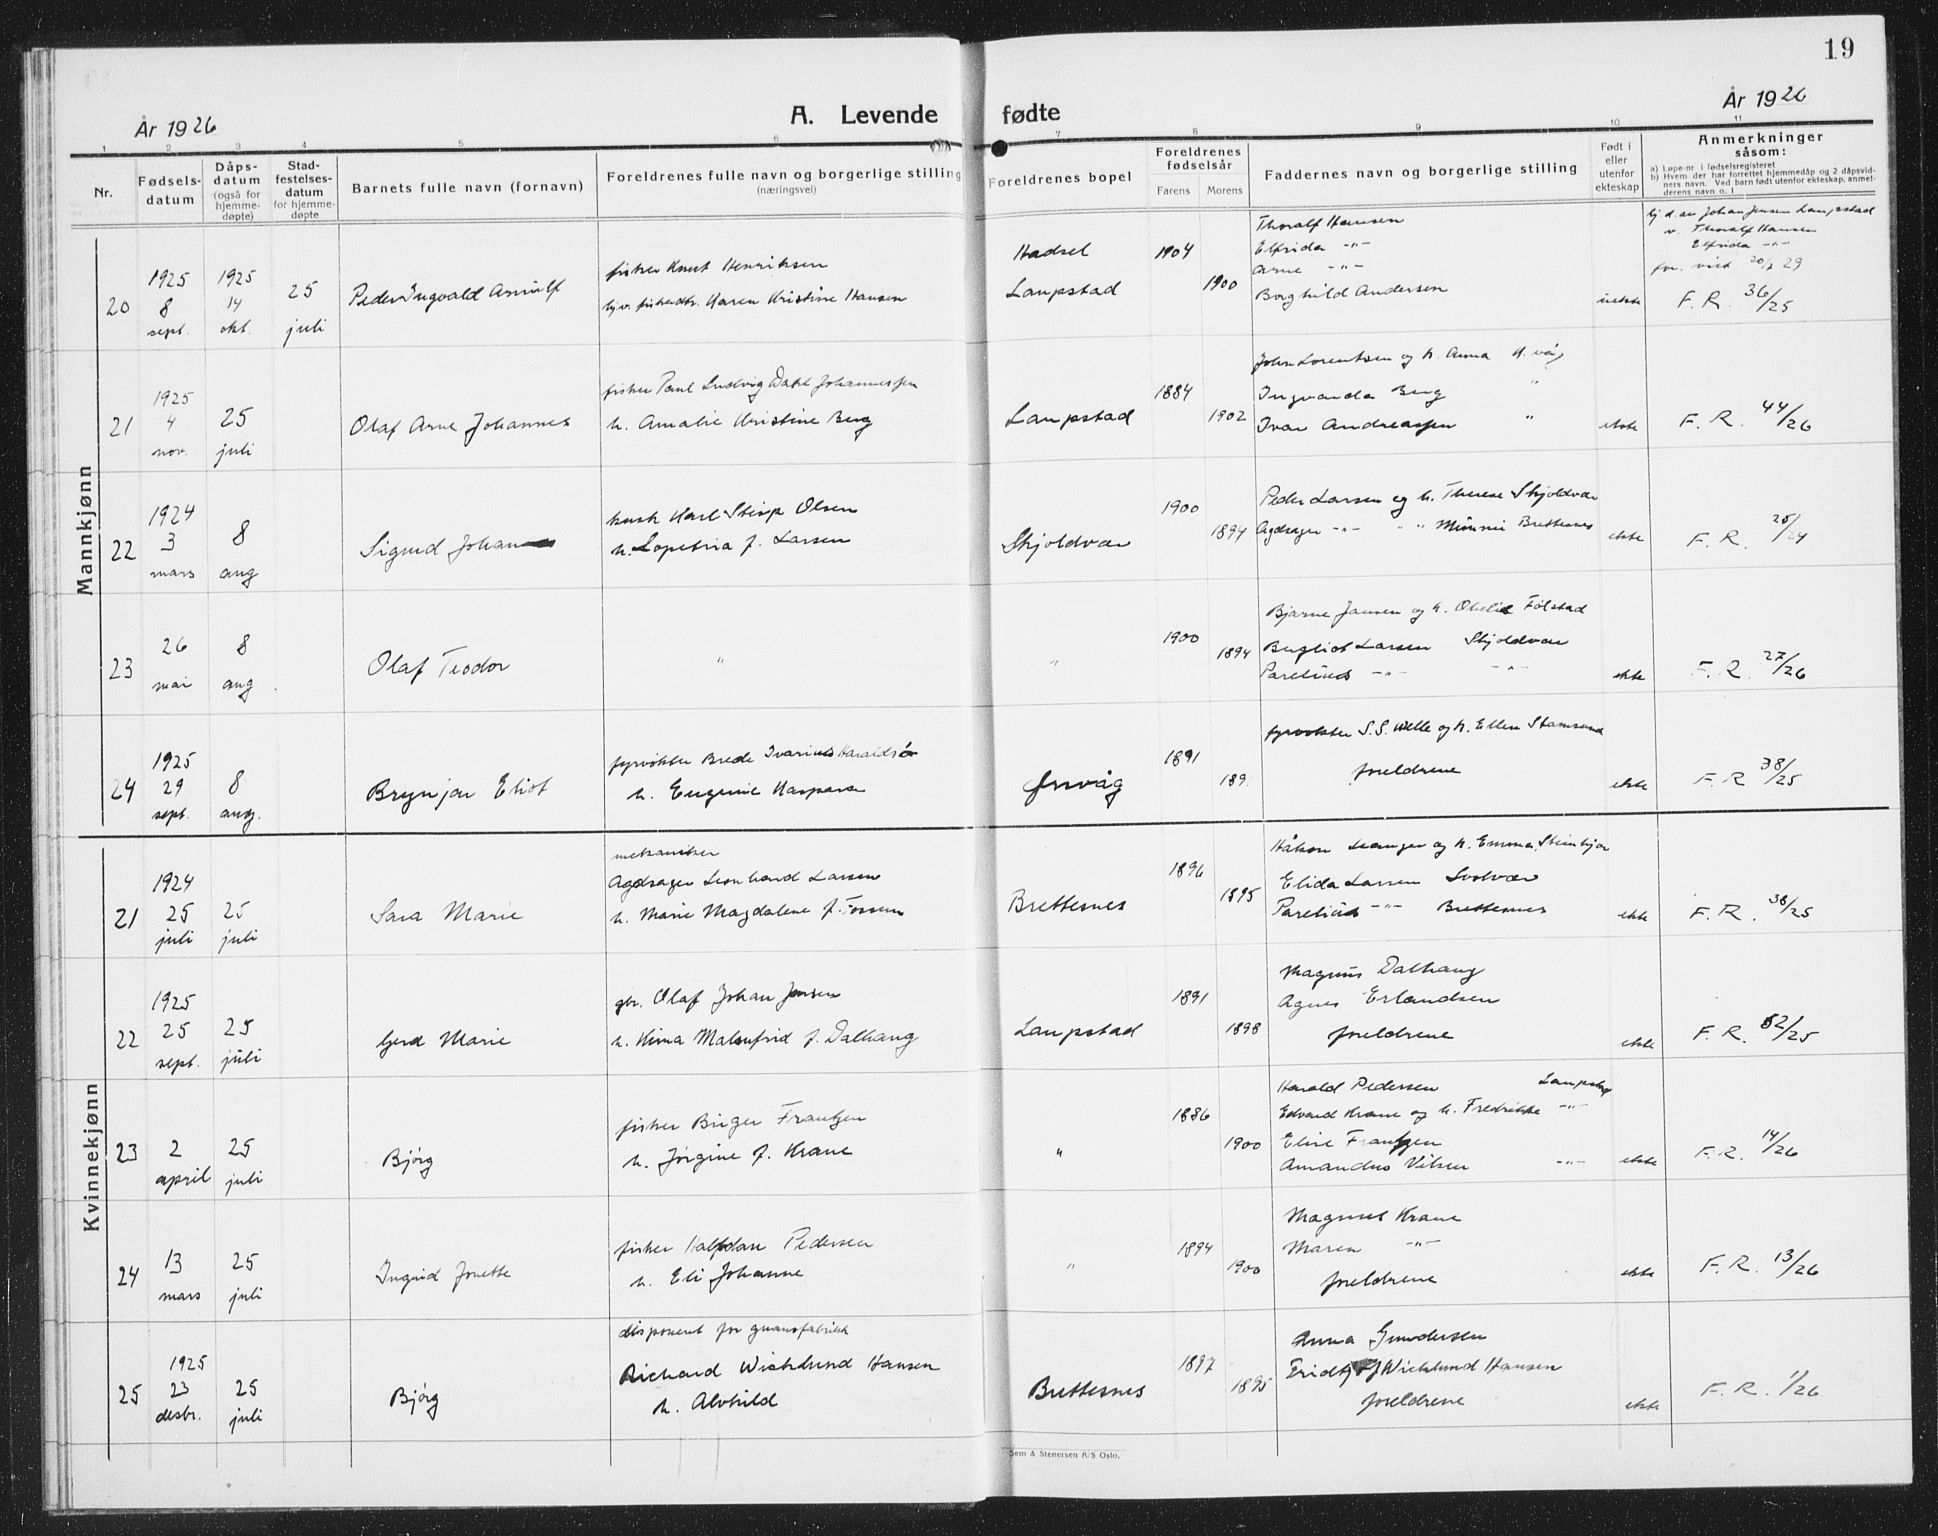 19
År 1926
A. Levende fødte
År 1926
1 2 3 4 5 6 7 8 9 10 11
Nr.
Fødsels-
datum
Dåps-
datum
(også for
hjemme-
døpte)
Stad-
festelses-
datum
for hjemme-
døpte
Barnets fulle navn (fornavn)
Foreldrenes fulle navn og borgerlige stilling
(næringsvei)
Foreldrenes bopel
Foreldrenes
fødselsår
Farens Morens
Faddernes navn og borgerlige stilling
Født i
eller
utenfor
ekteskap
Anmerkninger
såsom:
a) Løpe-nr. i fødselsregisteret
b) Hvem der har forrettet hjemmedåp og 2 dåpsvid-
ners navn. Ved barn født utenfor ekteskap, anmel-
derens navn o. l
Mannkjønn
20
1925
8
sept.
1925
14
okt.
25
juli
Peder Ingvald Arnulf
fisker Knut Henriksen
Karen Kristine Hansen
Hadsel
Laupstad
1904
1900
Thoralf Hansen
Elfrida -"-
Arne -"-
Borghild Andersen
uekte
hj. d. av Johan Jensen Laupstad
v. Thoralf Hansen
Elfrida -"-
F. R. 36/25
21
1925
4
nov.
25
juli
Olaf Arne Johannes
fisker Paul Ludvig Dahl Johannessen
h. Amalie Kristine Berg
Laupstad
1884
1902
John Lorentsen og h. Anna
Ingvarda Berg "
Ivar Andreassen "
ekte
F. R. 44/26
22
1924
3
mars
8
aug
Sigurd Johan
Karl Olsen
h. Lopetria f. Larsen
Skjoldvær
1900
1894
Peder Larsen og h. Therese Skjoldvær
Agdrager -"- " " Minnie Brettesnes
ekte
F. R. 25/24
23
26
mai
8
aug
Olaf Teodor
"
"
1900
1894
Bjarne Jansen og h. Følstad
Bergliot Larsen Skjoldvær
Parelius -"- -"-
ekte
F. R. 27/26
24
1925
29
sept.
8
aug.
Brynjar Eliot
fyrvokter Brede Ivarius Haraldsen
h. Eugenie
Ørsvåg
1891
189
fyrvokter S. S. Welle og h. Ellen Stamsund
foreldrene
ekte
F. R 38/25
Kvinnekjønn
21
1924
25
juli
25
juli
Sara Marie
mekaniker
Agdrager Leonhard Larsen
h. Marie Magdalene f. Fossum
Brettesnes
1896
1895
Håkon og h. Emma
Elida Larsen Svolvær
Parelius -"- Brettesnes
ekte
F. R. 38/25
22
1925
25
sept.
25
juli
Gerd Marie
gbr. Olaf Johan Jensen
h. Malmfrid f. Dalhaug
Laupstad
1891
1898
Magnus Dalhaug
Agnes Erlandsen
foreldrene
ekte
F. R. 52/25
23
2
april
25
juli
Bjørg
fisker Birger Frantzen
h. Jørgine f. Krane
"
1886
1900
Harald Pedersen Laupstad
Edvard Krane og h. Fredrikke -"-
Elise Frantzen
Amandus Nilsen -"-
ekte
F. R. 14/26
24
13
mars
25
juli
Ingrid Jonette
fisker Halfdan Pedersen
h. Eli Johanne
"
1894
1900
Magnus Krane
Maren -"-
foreldrene
ekte
F. R. 13/26
25
1925
23
desbr.
25
juli
Bjørg
disponent for guanofabrikk
Richard Wicklund Hansen
h. Alvhild
Brettesnes
1897
1895
Anna Gundersen
Fridtjof Wicklund Hansen
foreldrene
ekte
F. R. 1/26
Sem & Stenersen A/S Oslo.